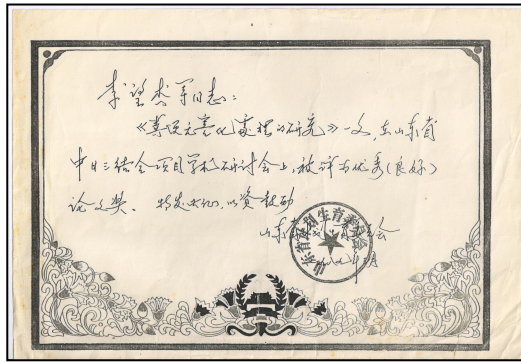 李望 等同志：
《粪便无害化处理的研究》一文，在山东省
中日 结合项目学术研讨会上，被评为优秀（良好）
论文奖。特发此证，以资鼓励
山东省计划生育委员会
一九八 年 月